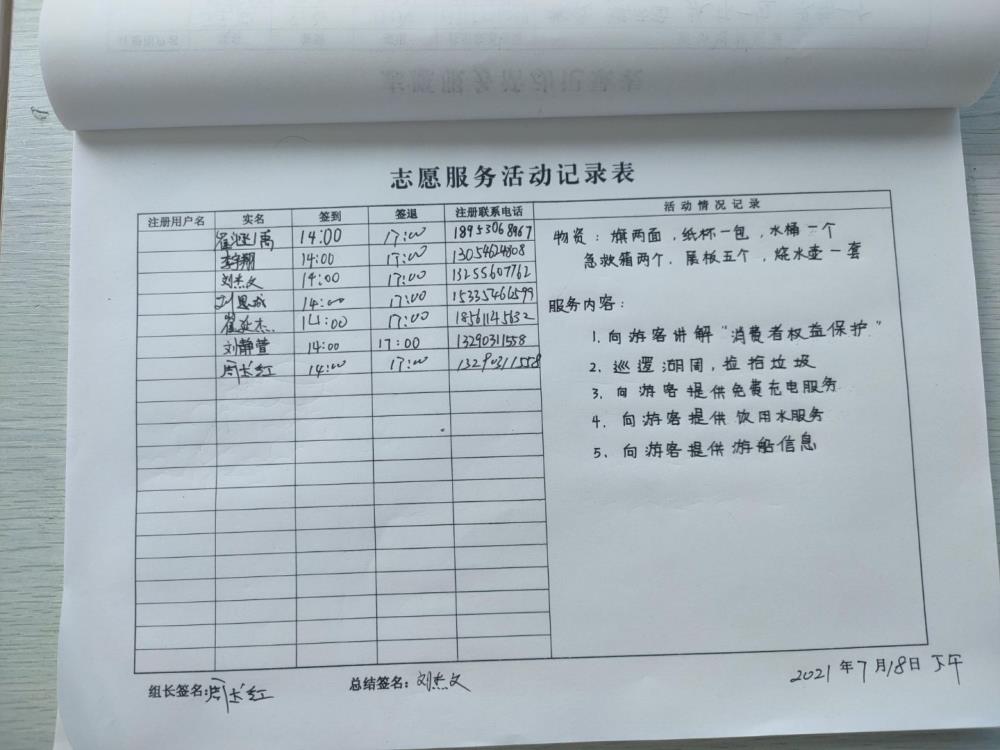 志愿服务活动记录表
注册用户名 实名 签到 签退 注册联系电话 活动情况记录
14:00 17:00 18953068967
李翔 14:00 17:00 13054624808
刘杰文 14:00 17:00 13255607762
刘恩城 14:00 17:00 15335466599
崔延杰 14:00 17:00 18561145632
刘静萱 14:00 17:00 13290311558
周长红 14:00 17:00 13290311558
物资：旗两面，纸杯一包，水桶一个
急救箱两个，展板五个，烧水壶一套
服务内容：
1. 向游客讲解“消费者权益保护”
2. 巡逻湖周，捡拾垃圾
3. 向游客提供免费充电服务
4. 向游客提供饮用水服务
5. 向游客提供游船信息
组长签名:周长红 总结签名:刘杰文 2021年7月18日下午